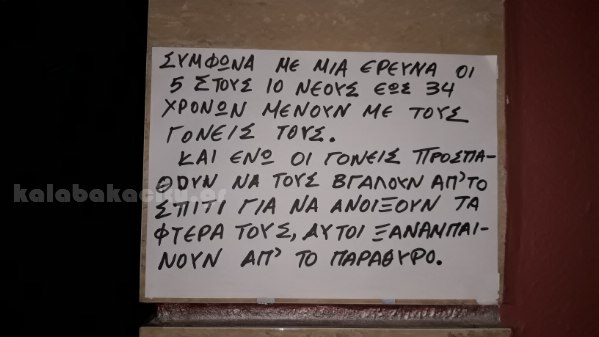 ΣΥΜΦΩΝΑ ΜΕ ΜΙΑ ΕΡΕΥΝΑ ΟΙ
5 ΣΤΟΥΣ 10 ΝΕΟΥΣ ΕΩΣ 34
ΧΡΟΝΩΝ ΜΕΝΟΥΝ ΜΕ ΤΟΥΣ
ΓΟΝΕΙΣ ΤΟΥΣ.
ΚΑΙ ΕΝΩ ΟΙ ΓΟΝΕΙΣ ΠΡΟΣΠΑ-
ΘΟΥΝ ΝΑ ΤΟΥΣ ΒΓΑΛΟΥΝ ΑΠ'ΤΟ
ΣΠΙΤΙ ΓΙΑ ΝΑ ΑΝΟΙΞΟΥΝ ΤΑ
ΦΤΕΡΑ ΤΟΥΣ, ΑΥΤΟΙ ΞΑΝΑΝΠΑΙ-
ΝΟΥΝ ΑΠ' ΤΟ ΠΑΡΑΘΥΡΟ.